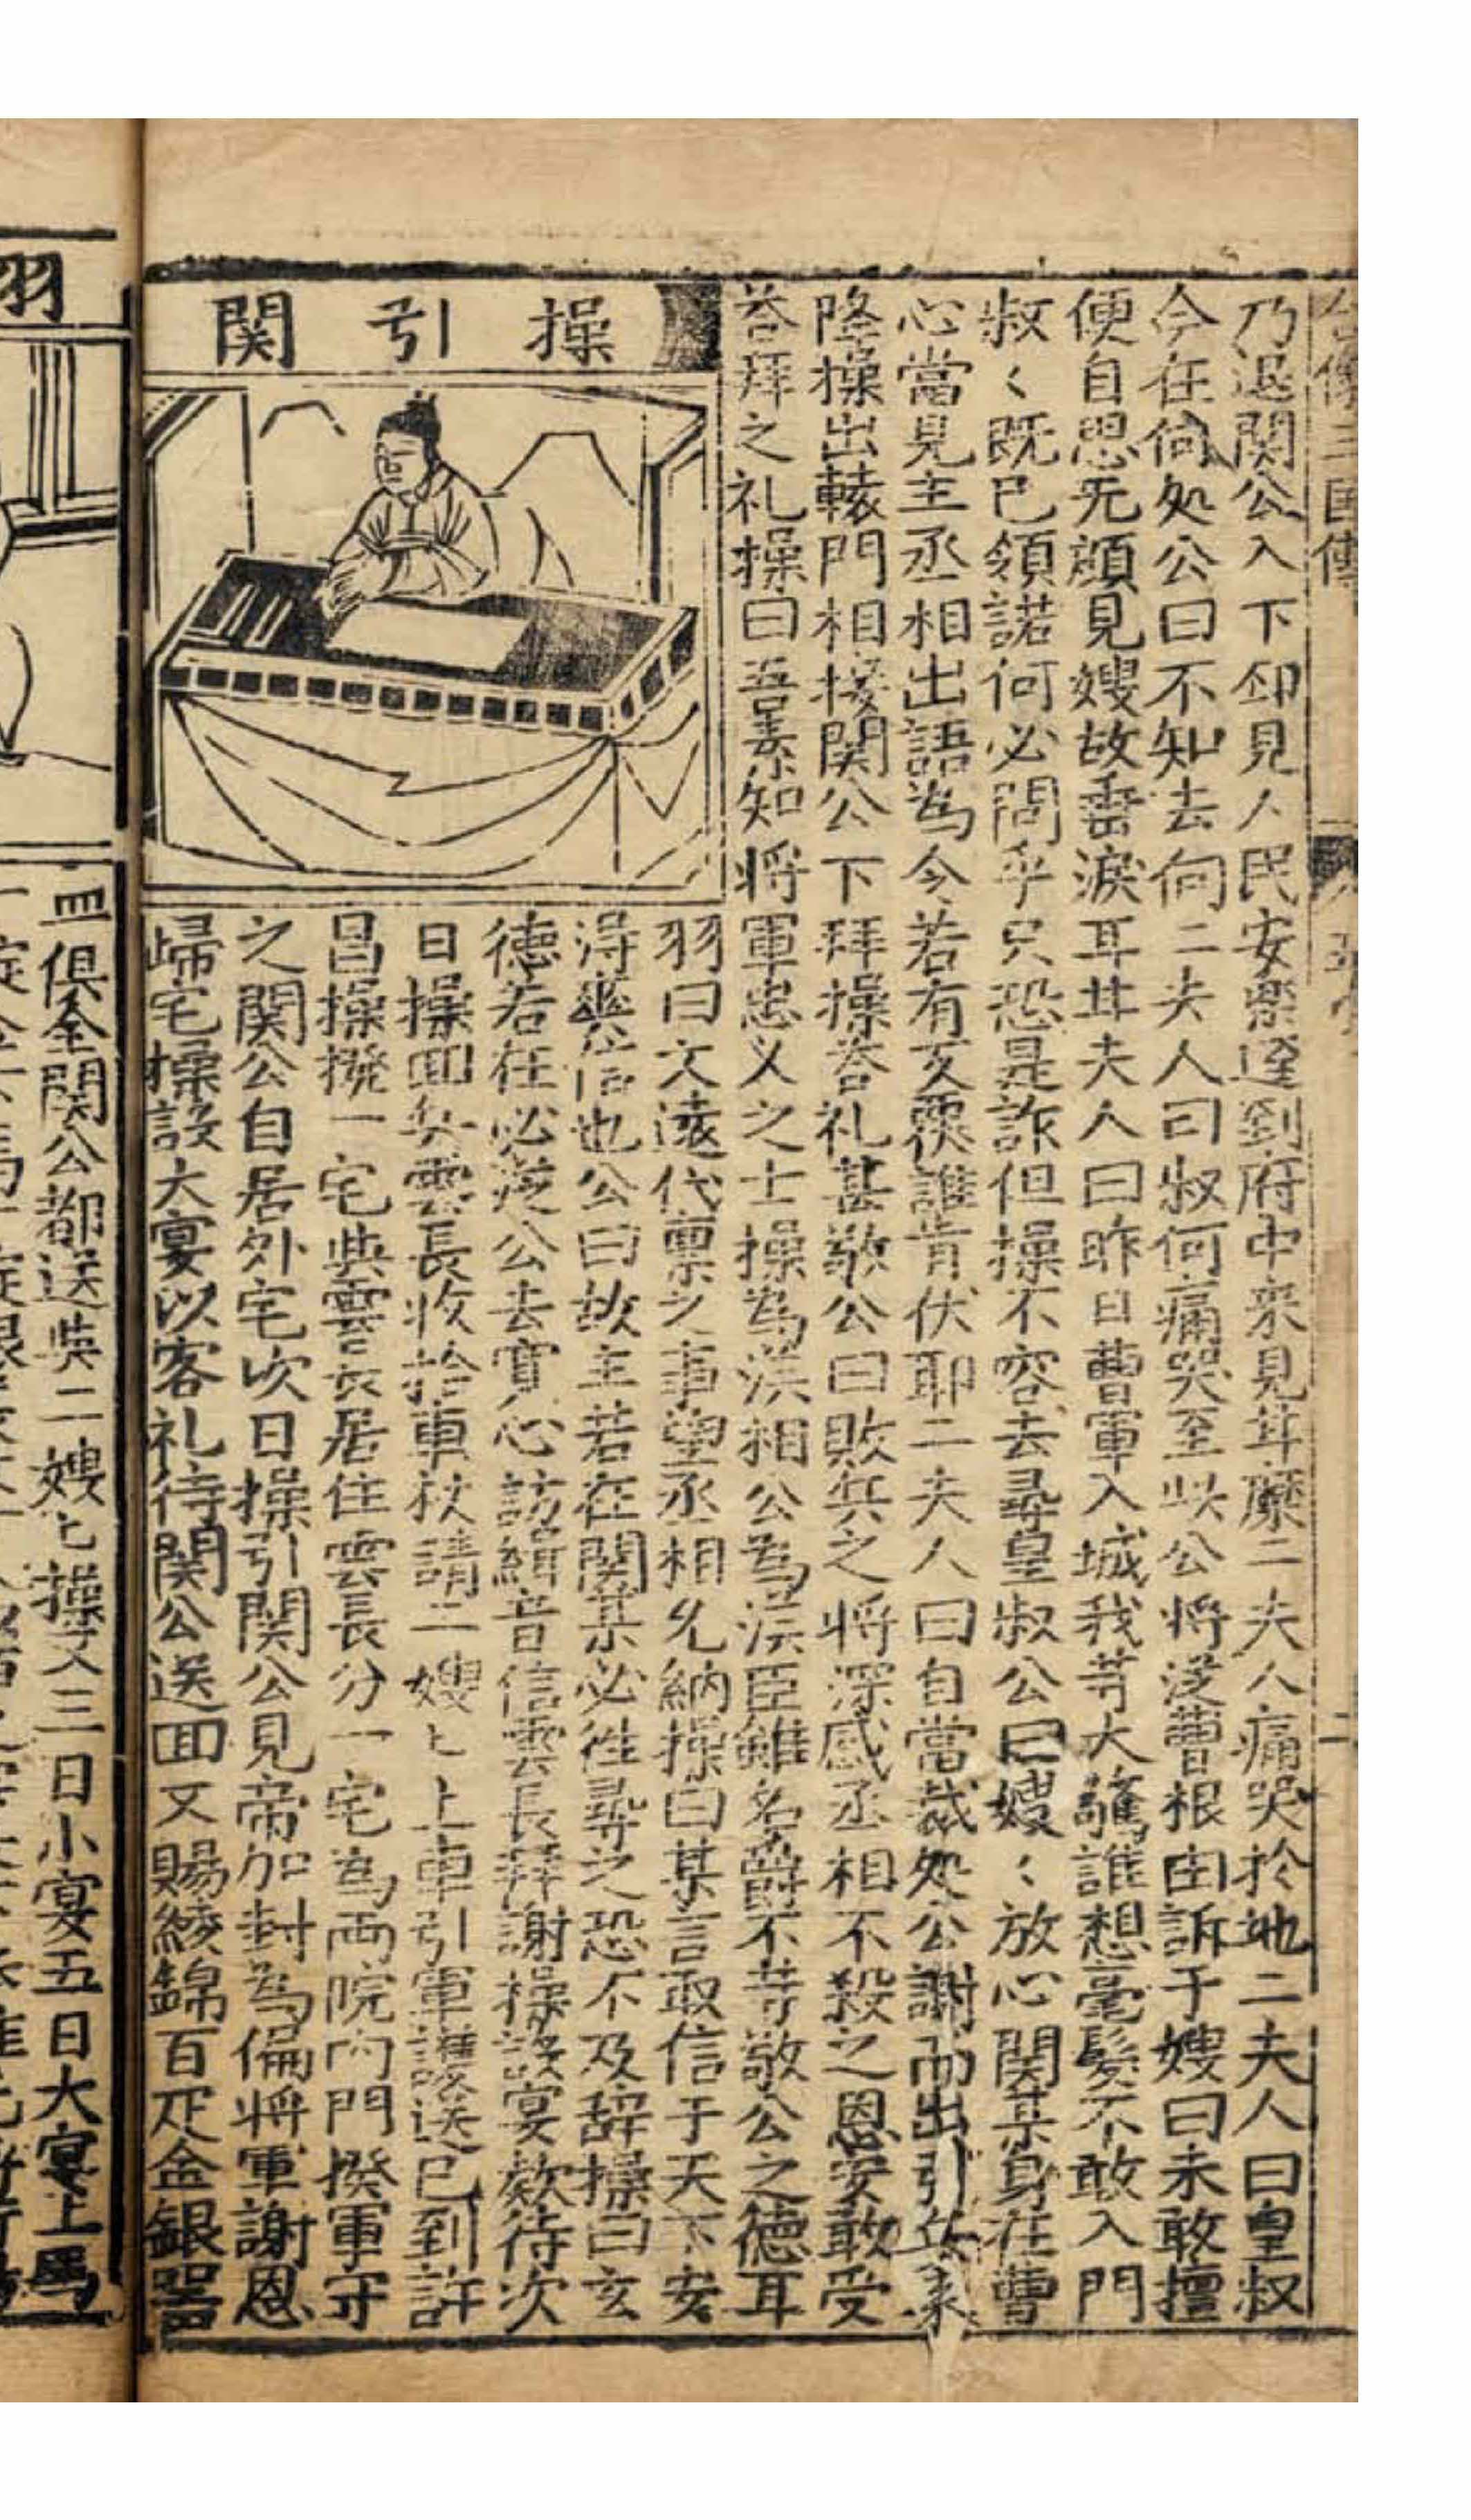 全像三国傳
乃退関公入下邳見人民安樂逕到府中來見甘糜二夫人痛哭於地二夫人曰皇叔
今在何処公曰不知去向二夫人曰叔何痛哭至此公将從曹根由訴于嫂曰未敢擅
便自思无顔見嫂故垂淚耳甘夫人曰昨日曹軍入城我等大驚誰想毫髮不敢入門
叔〻既已領諾何必問乎只恐是詐但操不容去尋皇叔公曰嫂〻放心関某身在曹
心當見主丞相出語為令若有反覆誰肯伏耶二夫人曰自當裁処公謝而出引兵來
降操出轅門相接関公下拜操荅礼甚敬公曰敗兵之将深感丞相不殺之恩安敢受
荅拜之礼操曰吾素知将軍忠义之士操為漢相公為漢臣雖名爵不等敬公之德耳
操引関
羽曰文遠代禀之事望丞相允納操曰某言取信于天下安
得失信也公曰故主若在関某必往尋之恐不及辞操曰玄
德若在必從公去寛心訪緝音信雲長拜謝操設宴欵待次
日操回兵雲長收拾車仗請二嫂匕上車引軍護送已到許
昌操撥一宅與雲長居住雲長分一宅為両院内門撥軍守
之関公自居外宅次日操引関公見帝加封為偏将軍謝恩
歸宅操設大宴以客礼待関公送回又賜綾錦百疋金銀器
羽
皿俱全関公都送與二嫂匕操又三日小宴五日大宴上馬